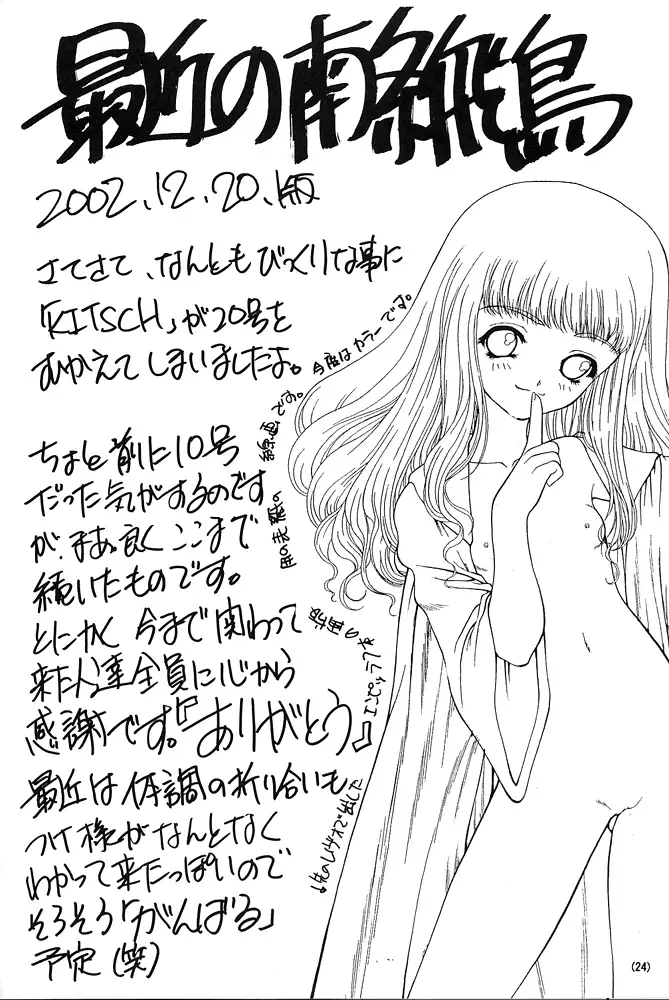 最近の南条飛鳥
2002.12.20.版
さてさて、なんともびっくりな事に
「KITSCH」が20号を
むかえてしまいましたよ。
ちょと前に10号
だった気がするのです
が、まあ良くここまで
続いたものです。
とにかく今まで関わって
来た人達全員に心から
感謝です。『ありがとう』
最近は体調の折り合いも
つけ様がなんとなく
わかって来たっぽいので
そろそろ「がんばる」
予定(笑)
今度はカラーです。
(24)